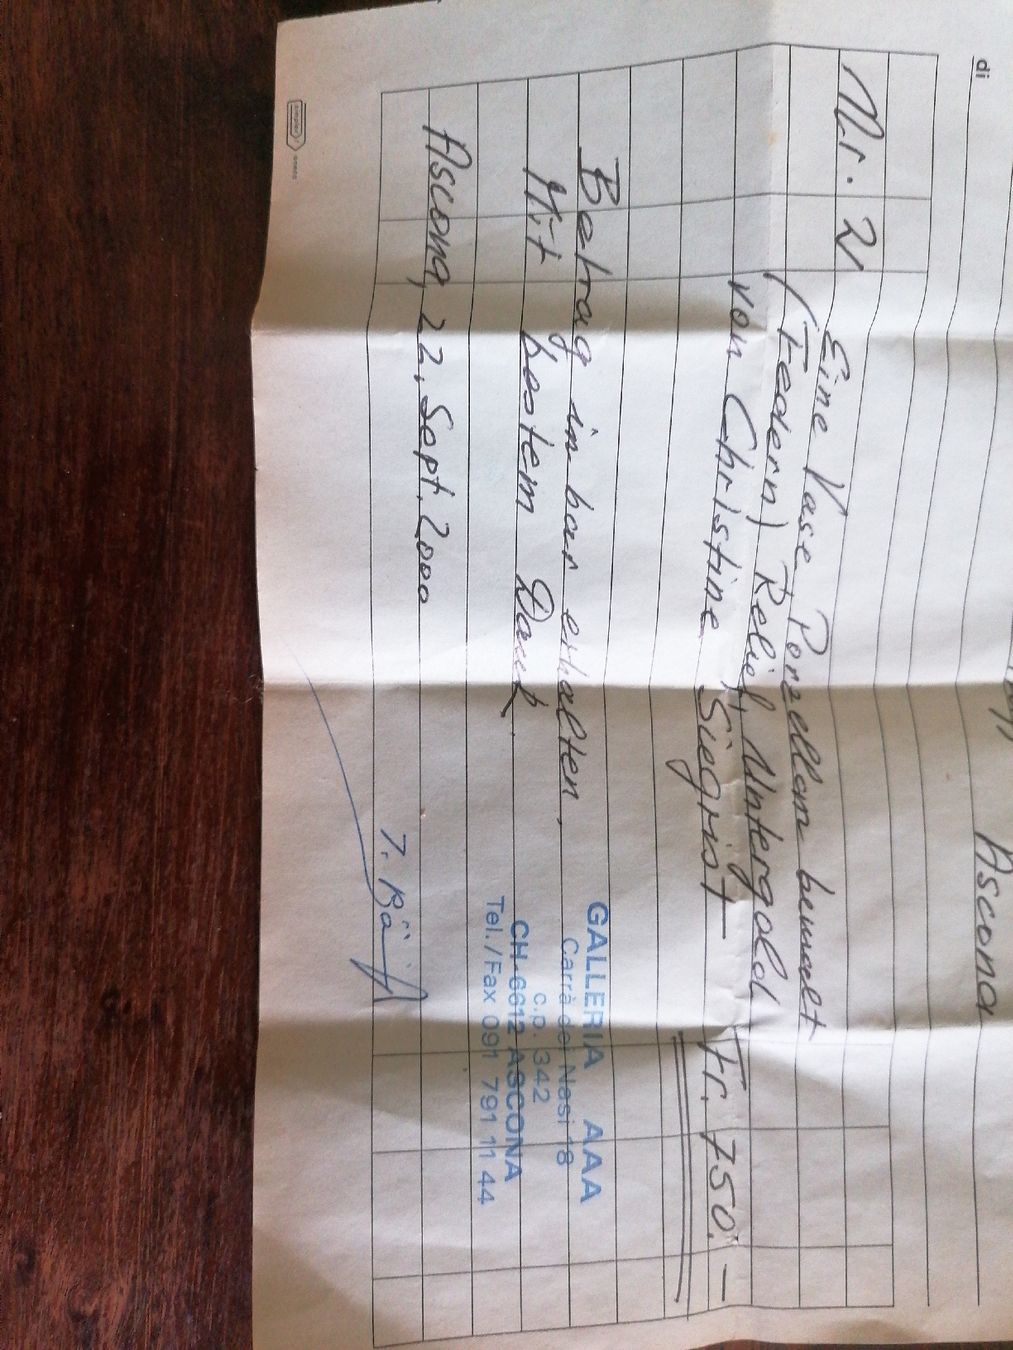 di
Ascona
Nr. 21 Eine Vase Porzellan bemalt
(Federn) Relief, Untergold
von Christine Siegrist Fr. 750.—
Betrag in bar erhalten,
Mit bestem Dank.
Ascona, 22. Sept. 2000
GALLERIA AAA
Carrà dei Nasi 18
c.p. 342
CH-6612 ASCONA
Tel./Fax 091 791 11 44
simplex